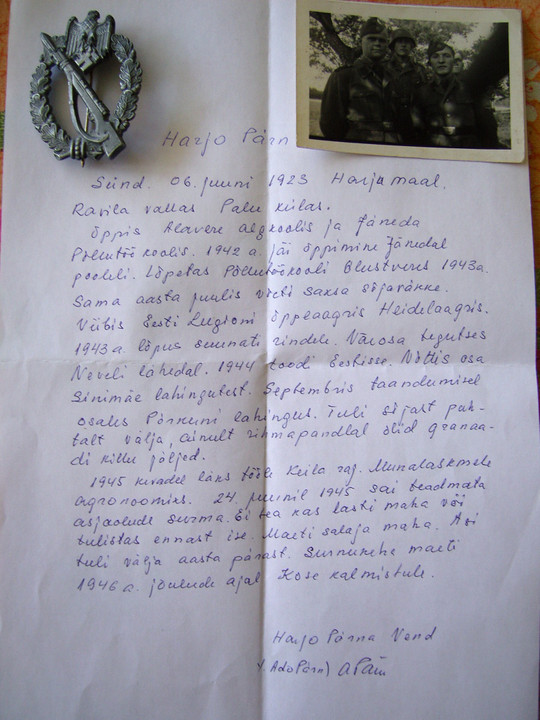 Harjo Pärn
Sünd. 06. juuni 1923 Harjumaal.
Ravila vallas Palu külas.
Õppis Alavere algkoolis ja Jäneda
Põllutöökoolis. 1942 a. jäi õppimine Jänedal
pooleli. Lõpetas Põllutöökooli Olustveres 1943 a.
Sama aasta juulis võeti saksa sõjaväkke.
Viibis Eesti Leegioni õppelaagris Heidelaagris.
1943 a. lõpus suunati rindele. Väeosa tegutses
Neveli lähedal. 1944 toodi Eestisse. Võttis osa
Sinimäe lahingutest. Septembris taandumisel
osales Porkuni lahingus. Tuli sõjast puh-
talt välja, ainult rihmapandlal olid granaa-
di killu jäljed.
1945 kevadel läks tööle Keila raj. Munalaskmele
agronoomiks. 24. juunil 1945 sai teadmata
asjaolude surma. Ei tea kas lasti maha või
tulistas ennast ise. Maeti salaja maha. Asi
tuli välja aasta pärast. Surnukeha maeti
1946 a. jõulude ajal Kose kalmistule.
Harjo Pärna Vend
(Ado Pärn) APärn